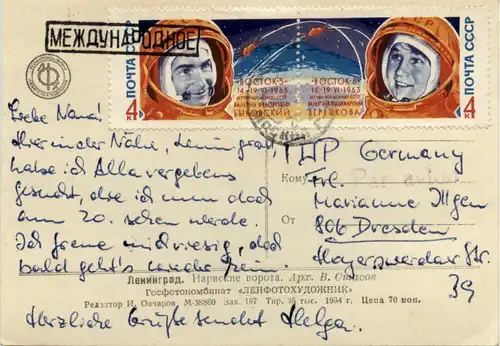 МЕЖДУНАРОДНОЕ
ПОЧТА СССР
4 к
ВОСТОК-5
14-19/VI-1963
ВАЛЕРИЙ ФЕДОРОВИЧ
БЫКОВСКИЙ
ВОСТОК-6
16-19/VI-1963
ВАЛЕНТИНА ВЛАДИМИРОВНА
ТЕРЕШКОВА
4 к
ПОЧТА СССР
Liebe Nana!
Hier in der Nähe, Leningrad,
habe ich Alla vergebens
gesucht, die ich nun doch
am 20. sehen werde.
Ich freue mich riesig, doch
bald geht's wieder heim.
Herzliche Grüße sendet Helga.
Germany
Кому
Par avion
Frl.
Marianne Illgen
От
806 Dresden
Hoyerswerdaer Str.
39
Ленинград. Нарвские ворота. Арх. В. Стасов
Госфотокомбинат «ЛЕНФОТОХУДОЖНИК»
Редактор И. Овчаров. М-38860 Зак. 197 Тир. 25 тыс. 1954 г. Цена 70 коп.